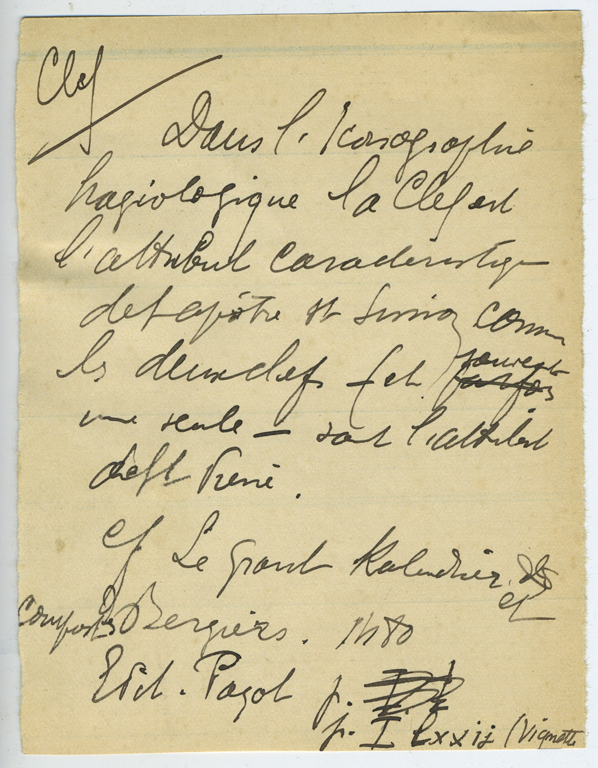 Clef
Dans l'Iconographie
hagiologique la Clef est
l'attribut caractéristique
de l'apôtre St Simon comme
les deux clefs — et souvent
une seule — sont l'attribut
de St
cf Le grant Kalendrier et
compost des Bergiers. 1480
Edit. Payot p.
p. I Lxxij (Vignette